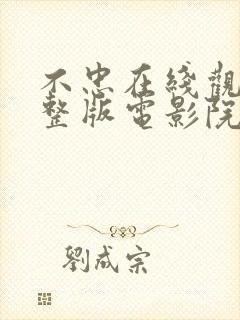 不忠在线觀
整版電影院
劉成宗